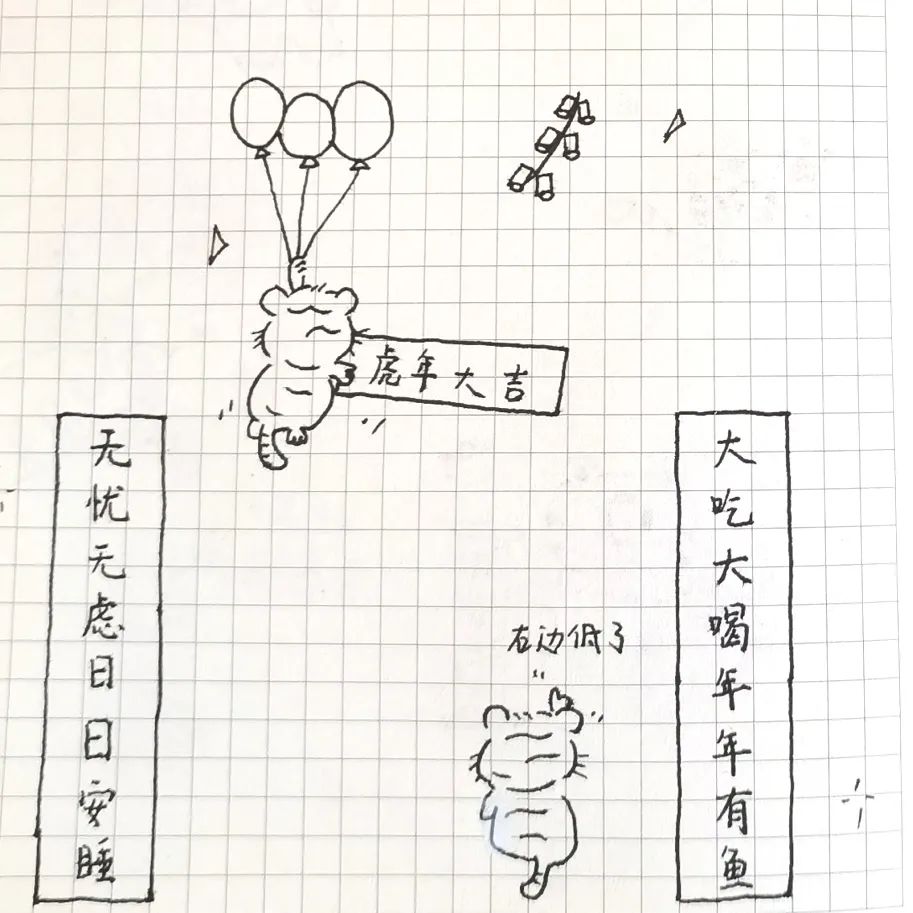 虎年大吉
大吃大喝年年有鱼
无忧无虑日日安睡
右边低了